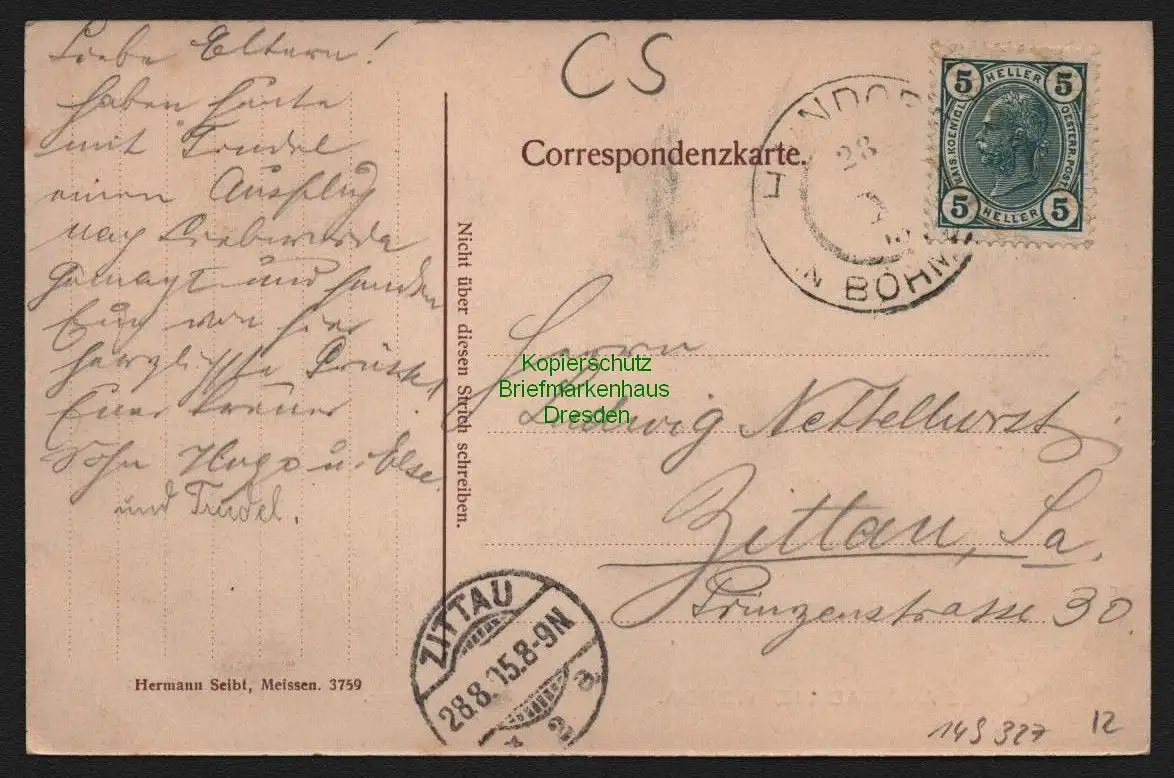 Liebe Eltern!
haben heute
mit Trudel
einen Ausflug
nach Liebwerda
gemacht und senden
Euch von hier
herzlichste Grüsse
Euer treuer
Sohn Hugo u. Else
und Trudel.
CS
Correspondenzkarte.
Nicht über diesen Strich schreiben.
5 HELLER 5
KAIS. KOENIGL. OESTERR. POST
5 HELLER 5
28
IN BÖHM
Kopierschutz
Briefmarkenhaus
Dresden
Herrn
Ludwig Nettelhorst
Zittau, Sa.
Prinzenstrasse 30.
ZITTAU
28.8.05.8-9N
Hermann Seibt, Meissen. 3759
149 327
12